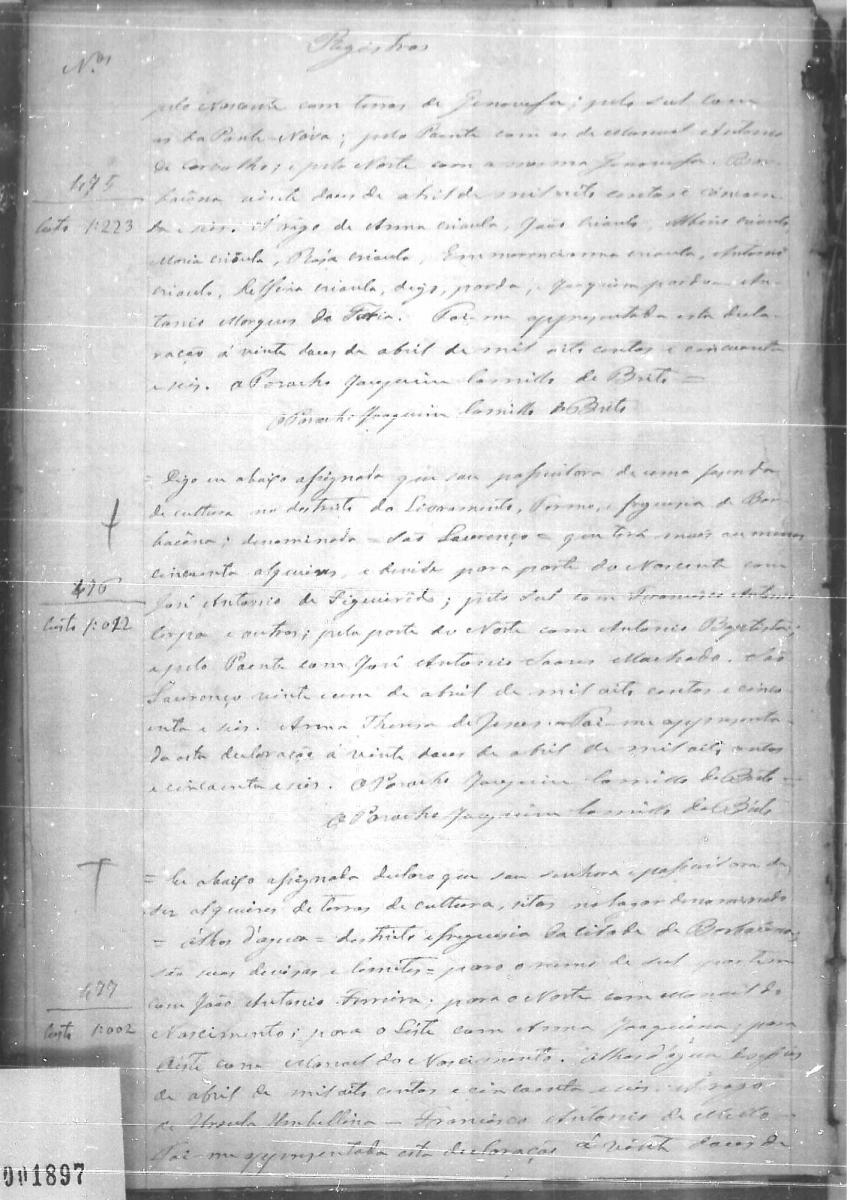 Registros
Nos
pelo Nascente com terras de Genovefa; pelo Sul com
as da Ponte Nova; pelo Poente com as de Manoel Antonio
de Carvalho; e pelo Norte com a mesma Genovefa. Bar-
475
bacêna vinte dous de abril de mil oito centos e cincoen-
Custo 1:223
ta e seis. A rogo de Anna crioula, João crioulo, crioulo,
Maria crioula, Roza crioula, crioula, Antonio
crioulo, crioula, digo, parda, e Joaquim pardo = An-
tonio Marques da. Foi-me appresentada esta decla-
ração á vinte dous de abril de mil oito centos e cincoenta
e seis. O Parocho Joaquim Camillo de Brito =
O Parocho Joaquim Camillo de Brito
= Digo eu abaixo assignada que sou possuidora de uma fazenda
de cultura no destricto do Livramento, Termo, e freguesia de Bar-
bacêna; denominada = São Lourenço = que terá mais ou menos
476
cincoenta alqueires, e divide para parte do Nascente com
José Antonio de Figueirêdo; pelo Sul com Francisco Antonio
Custo 1:012
e outros; pela parte do Norte com Antonio Baptista;
e pelo Poente com José Antonio Soares Machado. São
Lourenço vinte e um de abril de mil oito centos e cinco-
enta e seis. Anna Theresa de Jesus = Foi-me appresenta-
da esta declaração á vinte dous de abril de mil oito centos
e cincoenta e seis. O Parocho Joaquim Camillo de Brito =
O Parocho Joaquim Camillo de Brito
= Eu abaixo assignada declaro que sou senhora e possuidora de
dez alqueires de terras de cultura, sitas no lugar denominado
= ólhos d'agua = destricto e freguesia da Cidade de Barbacêna,
são suas devisas e lemites = para o rumo do Sul partem
477
com João Antonio Ferreira; para o Norte com Manoel do
Custo 1:002
Nascimento; para o Léste com Anna Joaquina; para
Oéste com Manoel do Nascimento. Olhos d'agua
de abril de mil oito centos e cincoenta e seis. A rogo
de Ursula Umbellina = Francisco Antonio de
Foi-me appresentada esta declaração á vinte dous de
001897